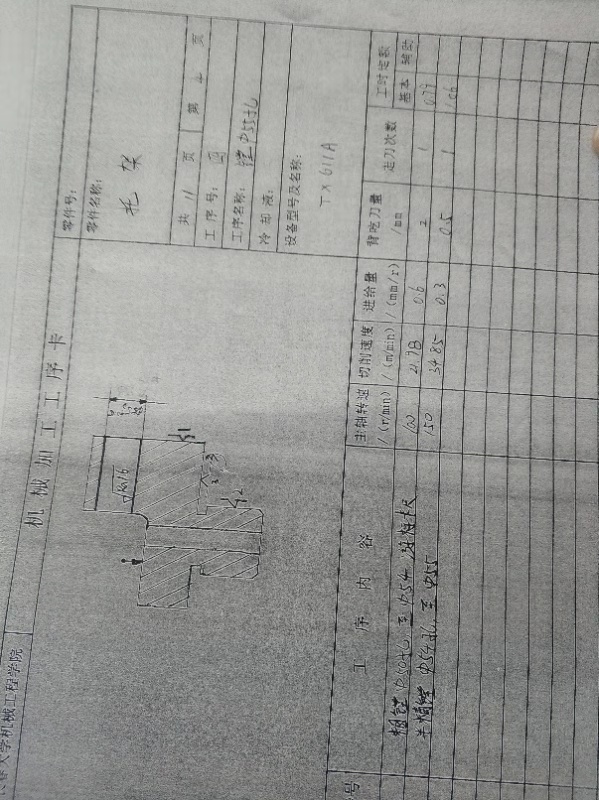 大学机械工程学院
机械加工工序卡
零件号:
零件名称:
托架
共 11 页 第 4 页
工序号: 四
工序名称: 镗Φ55孔
冷却液:
设备型号及名称:
TX611A
Ra1.6
工序内容
主轴转速/(r/min)
切削速度/(m/min)
进给量/(mm/r)
背吃刀量/mm
走刀次数
工时定额
基本 辅助
粗镗Φ50孔,至Φ54 100 0.6 2 1 0.77
半精镗Φ54孔,至Φ55 150 34.85 0.3 0.5 1
号